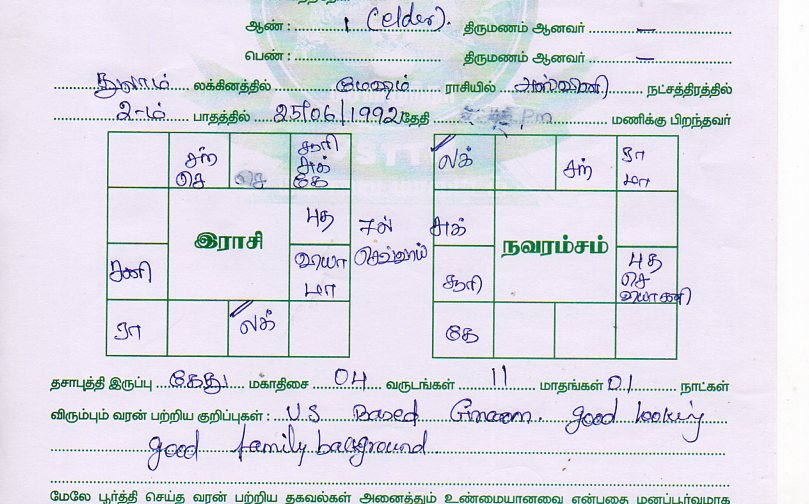 ஆண் : 1 (elder). திருமணம் ஆனவர் —
பெண் : திருமணம் ஆனவர் —
துலாம் லக்கினத்தில் மேஷம் ராசியில் அஸ்வினி நட்சத்திரத்தில்
2-ம் பாதத்தில் 25/06/1992 தேதி Pm மணிக்கு பிறந்தவர்
சந் செ செ சூரி சுக் கே
புத
இராசி
சனி வியா மா
ரா லக்
7ல் செவ்வாய்
லக் சந் ரா மா
சுக்
நவாம்சம்
சூரி புத செ வியா சனி
கே
தசாபுத்தி இருப்பு கேது மகாதிசை 04 வருடங்கள் 11 மாதங்கள் 01 நாட்கள்
விரும்பும் வரன் பற்றிய குறிப்புகள் : U.S Based Groom. good looking
good family background
மேலே பூர்த்தி செய்த வரன் பற்றிய தகவல்கள் அனைத்தும் உண்மையானவை என்பதை மனப்பூர்வமாக